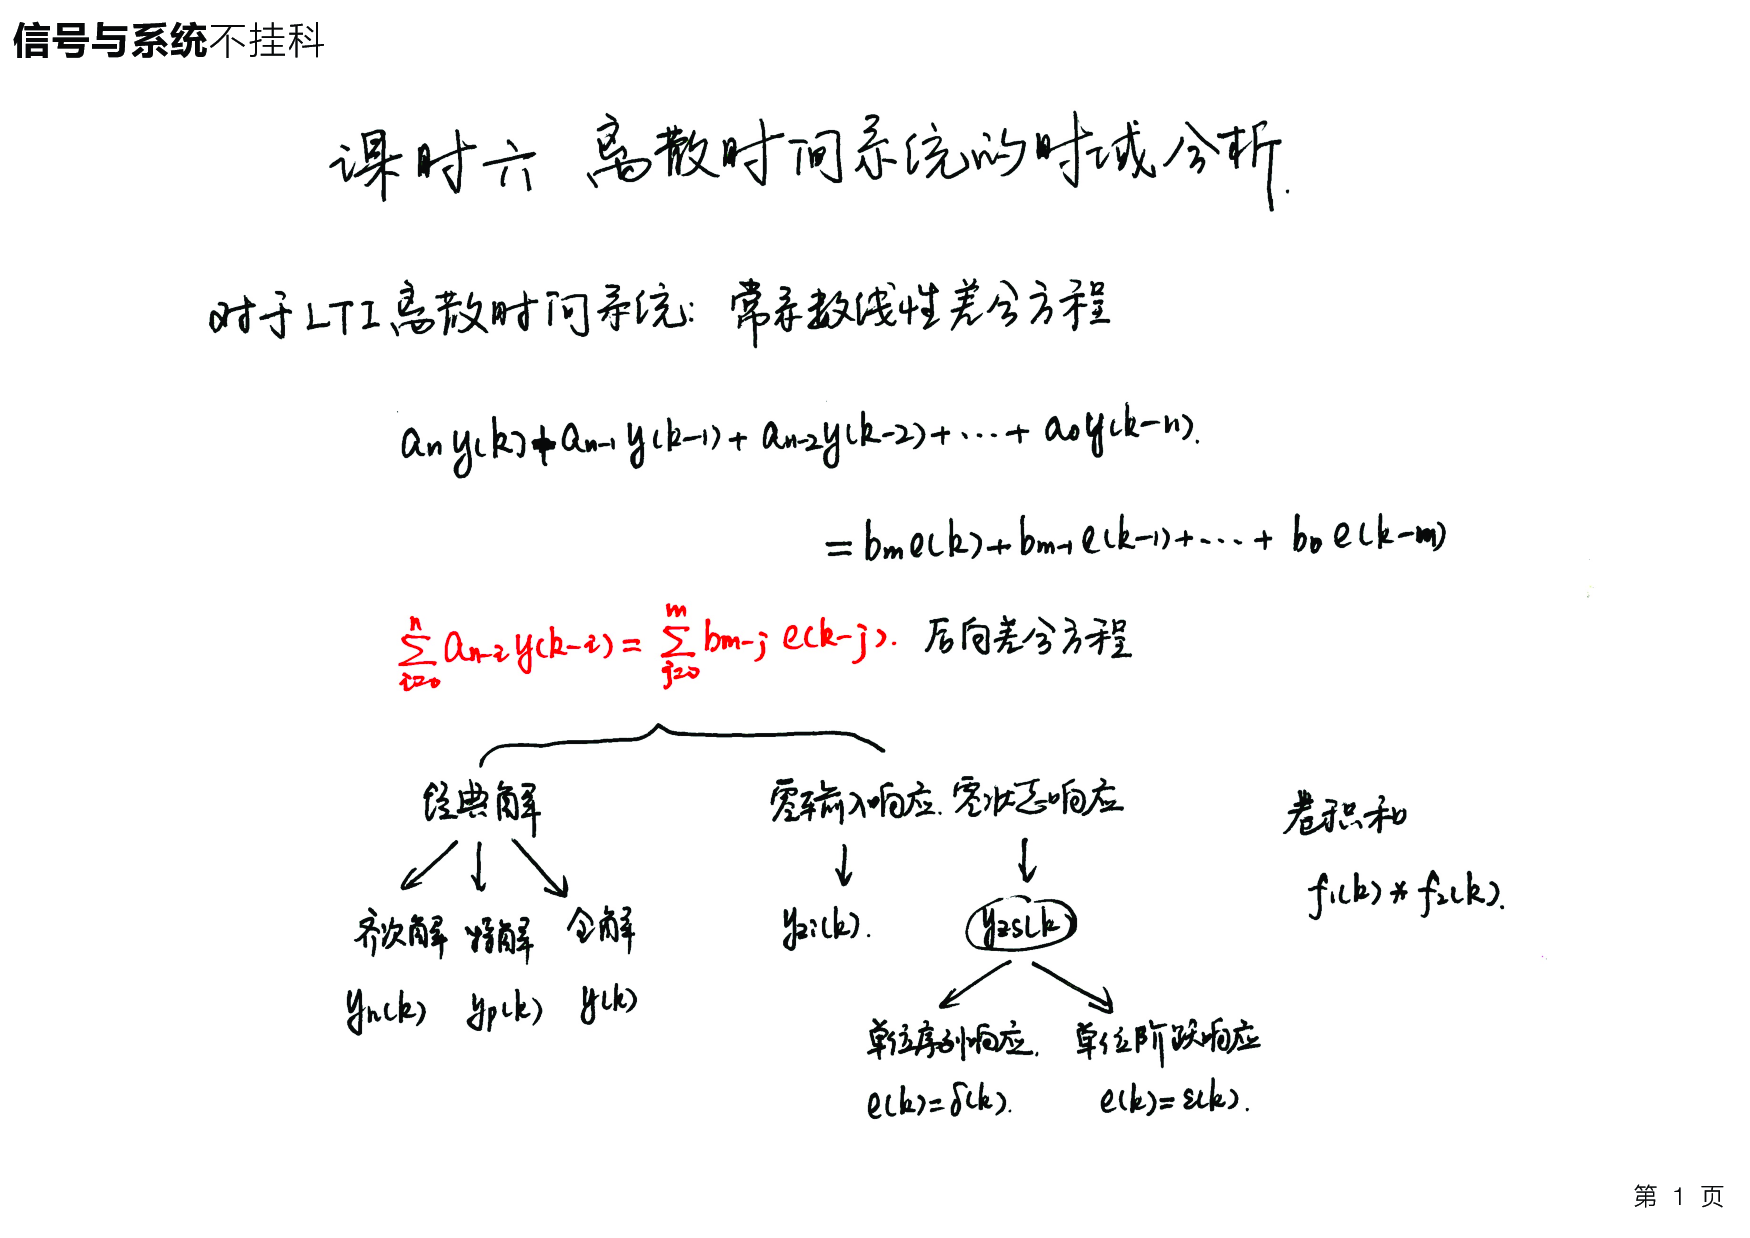 信号与系统不挂科
课时六 离散时间系统的时域分析.
对于LTI离散时间系统: 常系数线性差分方程
aₙy(k)+aₙ₋₁y(k-1)+aₙ₋₂y(k-2)+⋯+a₀y(k-n).
=bₘe(k)+bₘ₋₁e(k-1)+⋯+b₀e(k-m)
∑_{i=0}^{n} a_{n-i}y(k-i)=∑_{j=0}^{m} b_{m-j}e(k-j). 后向差分方程
经典解 零输入响应. 零状态响应 卷积和
齐次解 特解 全解 y_{zi}(k). y_{zs}(k) f₁(k)*f₂(k).
y_h(k) y_p(k) y(k)
单位序列响应. 单位阶跃响应
e(k)=δ(k). e(k)=ε(k).
第 1 页